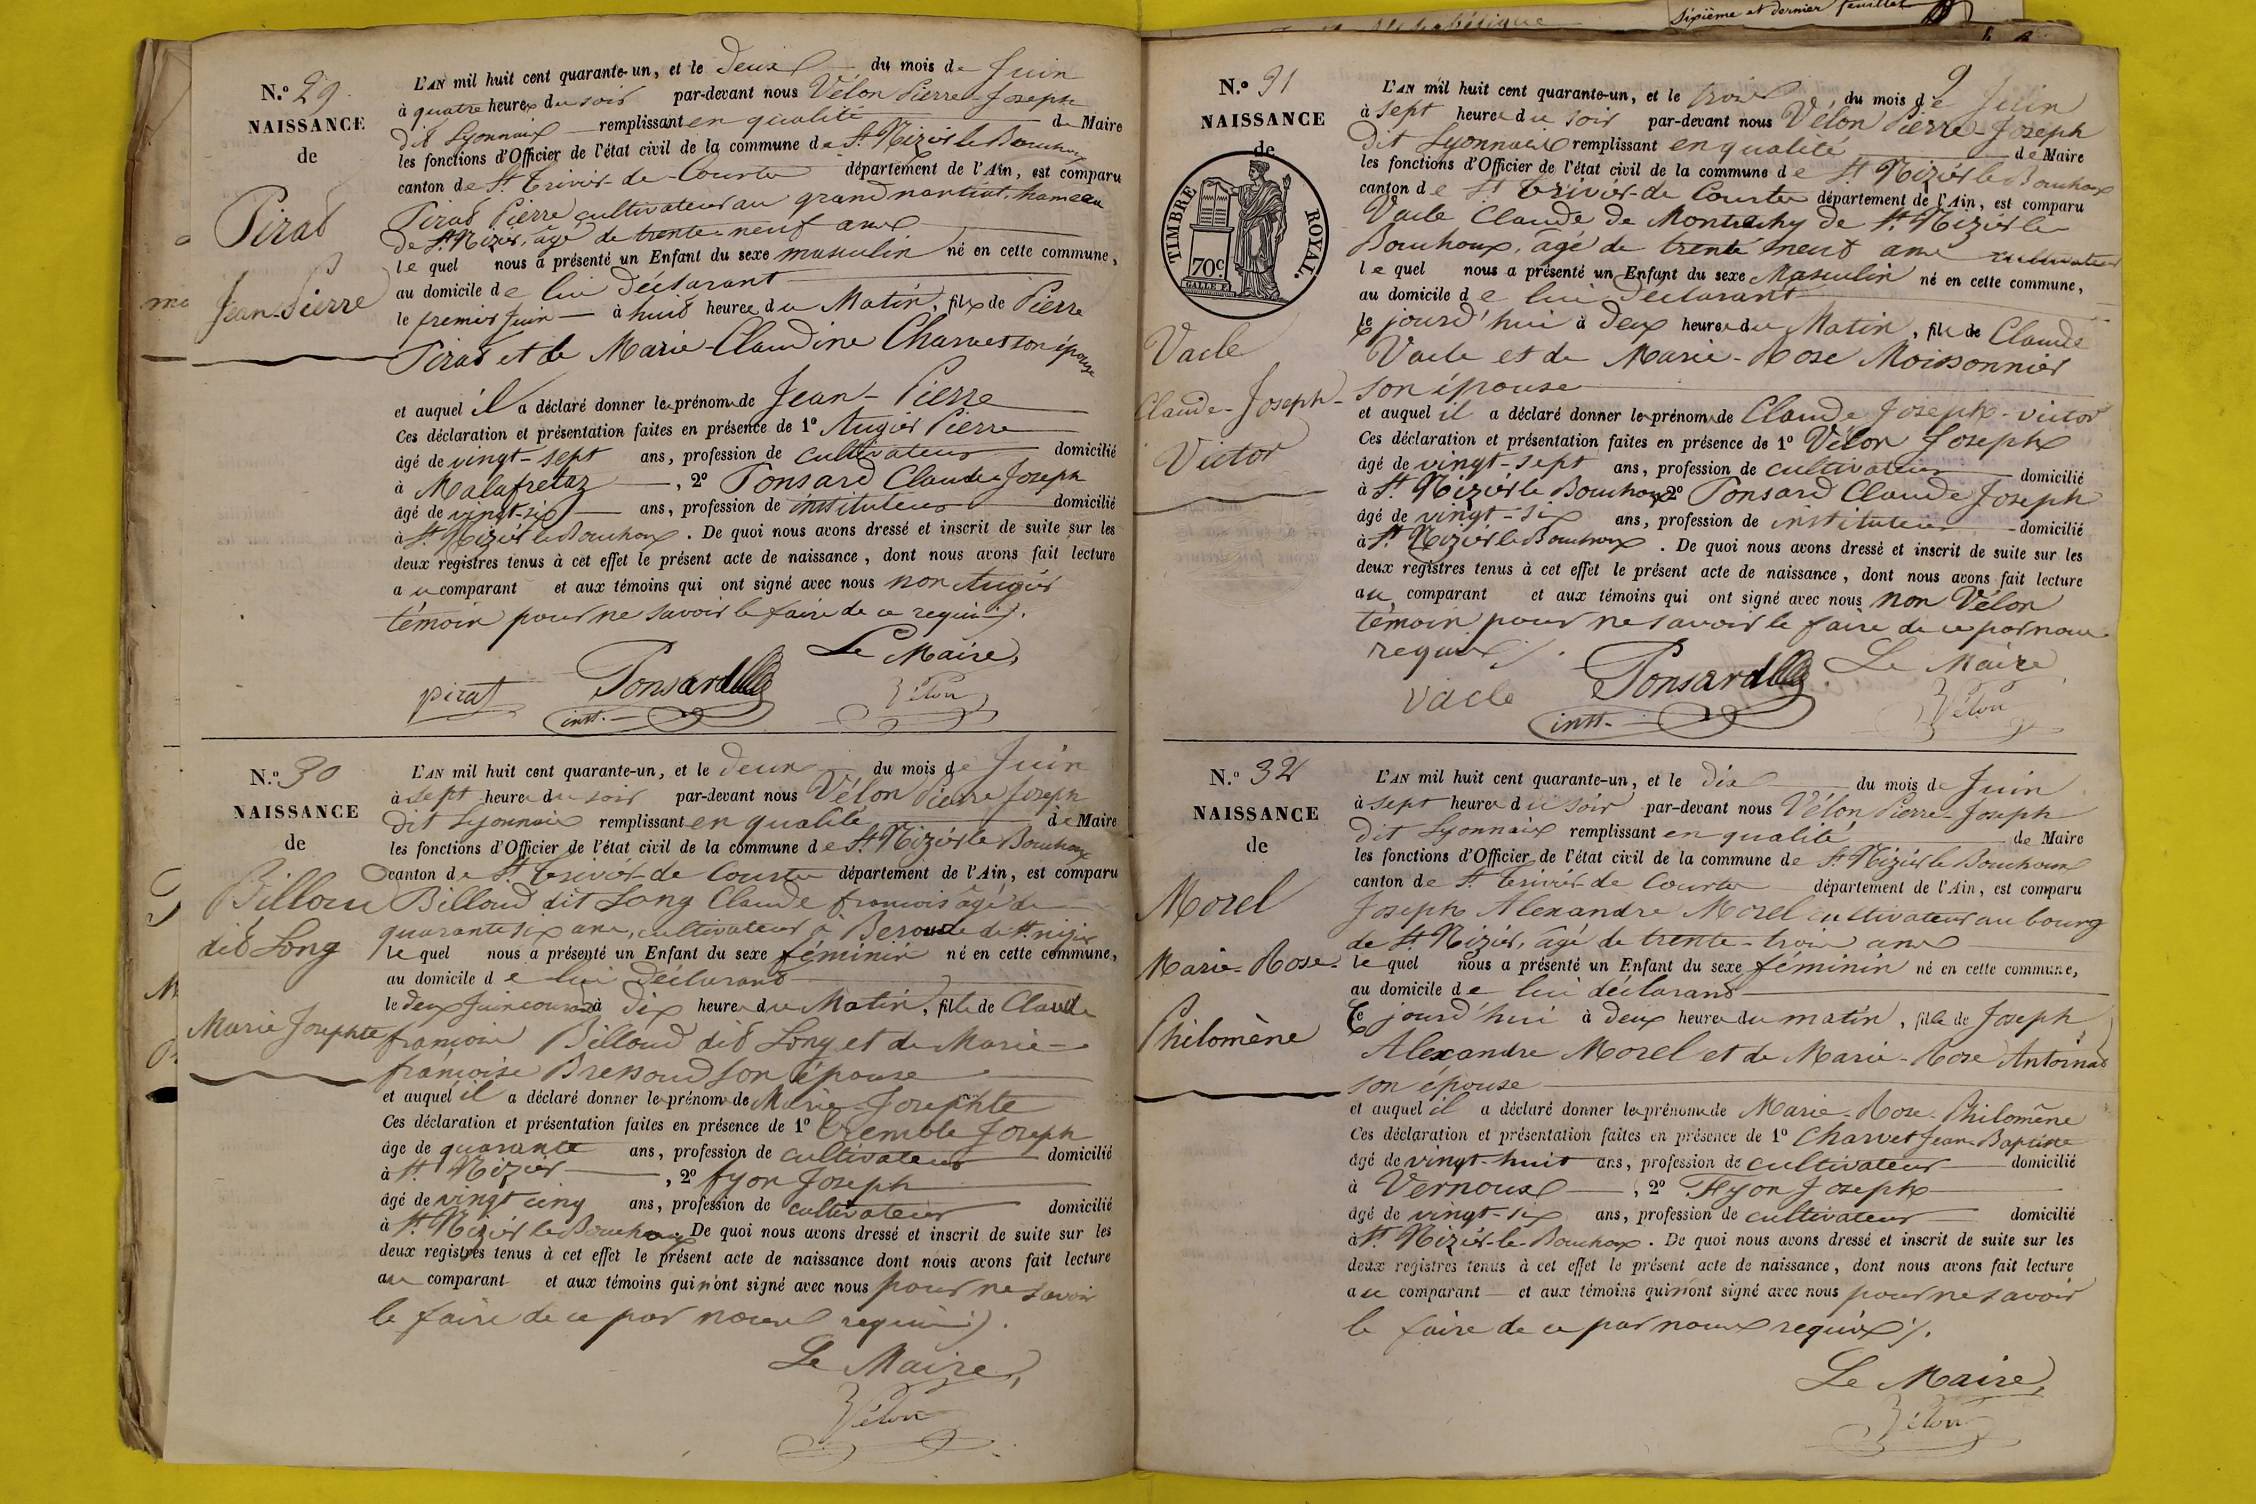 Sixième et dernier feuillet
N.º 29
NAISSANCE
de
Pirat
Jean-Pierre
L'AN mil huit cent quarante-un, et le deux du mois de Juin
à quatre heures du soir par-devant nous Vélon Pierre-Joseph
dit Lyonnais remplissant en qualité de Maire
les fonctions d'Officier de l'état civil de la commune de St. Nizier le Bouchoux
canton de St. Trivier-de-Courtes département de l'Ain, est comparu
Pirat Pierre cultivateur au grand hameau
de St. Nizier, âgé de trente-neuf ans
le quel nous a présenté un Enfant du sexe masculin né en cette commune,
au domicile de lui déclarant
le premier Juin à huit heures du Matin, fils de Pierre
Pirat et de Marie-Claudine Charvet son épouse
et auquel il a déclaré donner les prénoms de Jean-Pierre
Ces déclaration et présentation faites en présence de 1º Augier Pierre
âgé de vingt-sept ans, profession de cultivateur domicilié
à Malafretaz, 2º Ponsard Claude Joseph
âgé de vingt-six ans, profession de instituteur domicilié
à St. Nizier le Bouchoux. De quoi nous avons dressé et inscrit de suite sur les
deux registres tenus à cet effet le présent acte de naissance, dont nous avons fait lecture
au comparant et aux témoins qui ont signé avec nous non Augier
témoin pour ne savoir le faire de ce requis ./.
Le Maire,
pirat Ponsard Vélon
inst.
N.º 30
NAISSANCE
de
Billou
dit Long
Marie Josephte
L'AN mil huit cent quarante-un, et le deux du mois de Juin
à sept heures du soir par-devant nous Vélon Pierre Joseph
dit Lyonnais remplissant en qualité de Maire
les fonctions d'Officier de l'état civil de la commune de St. Nizier le Bouchoux
canton de St. Trivier-de-Courtes département de l'Ain, est comparu
Billoud dit Long Claude françois âgé de
quarante six ans, cultivateur à de St. nizier
le quel nous a présenté un Enfant du sexe féminin né en cette commune,
au domicile de lui déclarant
le deux Juin courant à dix heures du Matin, fille de Claude
françois Billoud dit Long et de Marie-
françoise Bressoud son épouse
et auquel il a déclaré donner le prénom de Marie-Josephte
Ces déclaration et présentation faites en présence de 1º Tremble Joseph
âge de quarante ans, profession de cultivateur domicilié
à St. Nizier, 2º fyon Joseph
âgé de vingt cinq ans, profession de cultivateur domicilié
à St. Nizier le Bouchoux De quoi nous avons dressé et inscrit de suite sur les
deux registres tenus à cet effet le présent acte de naissance dont nous avons fait lecture
au comparant et aux témoins qui n'ont signé avec nous pour ne savoir
le faire de ce par nous requis ./.
Le Maire,
Vélon
9
N.º 31
NAISSANCE
de
TIMBRE ROYAL.
70c.
Vacle
Claude-Joseph-
Victor
L'AN mil huit cent quarante-un, et le trois du mois de Juin
à sept heures du soir par-devant nous Vélon Pierre-Joseph
dit Lyonnais remplissant en qualité de Maire
les fonctions d'Officier de l'état civil de la commune de St. Nizier le Bouchoux
canton de St. Trivier-de Courtes département de l'Ain, est comparu
Vacle Claude de de St. Nizier le
Bouchoux, âgé de trente neuf ans cultivateur
le quel nous a présenté un Enfant du sexe Masculin né en cette commune,
au domicile de lui déclarant
Ce jourd'hui à deux heures du Matin, fils de Claude
Vacle et de Marie-Rose Moissonnier
son épouse
et auquel il a déclaré donner les prénoms de Claude Joseph-victor
Ces déclaration et présentation faites en présence de 1º Vélon Joseph
âgé de vingt-sept ans, profession de cultivateur domicilié
à St. Nizier le Bouchoux, 2º Ponsard Claude Joseph
âgé de vingt-six ans, profession de instituteur domicilié
à St. Nizier le Bouchoux. De quoi nous avons dressé et inscrit de suite sur les
deux registres tenus à cet effet le présent acte de naissance, dont nous avons fait lecture
au comparant et aux témoins qui ont signé avec nous non Vélon
témoin pour ne savoir le faire de ce par nous
requis ./.
Le Maire
Vacle Ponsard Vélon
inst.
N.º 32
NAISSANCE
de
Morel
Marie-Rose-
Philomène
L'AN mil huit cent quarante-un, et le dix du mois de Juin
à sept heures du soir par-devant nous Vélon Pierre-Joseph
dit Lyonnais remplissant en qualité de Maire
les fonctions d'Officier de l'état civil de la commune de St. Nizier le Bouchoux
canton de St. Trivier de Courtes département de l'Ain, est comparu
Joseph Alexandre Morel cultivateur au bourg
de St. Nizier, âgé de trente-trois ans
le quel nous a présenté un Enfant du sexe féminin né en cette commune,
au domicile de lui déclarant
Ce jourd'hui à deux heures du matin, fille de Joseph
Alexandre Morel et de Marie-Rose Antoinat
son épouse
et auquel il a déclaré donner les prénoms de Marie-Rose-Philomène
Ces déclaration et présentation faites en présence de 1º Charvet Jean-Baptiste
âgé de vingt-huit ans, profession de cultivateur domicilié
à Vernoux, 2º fyon Joseph
âgé de vingt-six ans, profession de cultivateur domicilié
à St. Nizier-le-Bouchoux. De quoi nous avons dressé et inscrit de suite sur les
deux registres tenus à cet effet le présent acte de naissance, dont nous avons fait lecture
au comparant et aux témoins qui n'ont signé avec nous pour ne savoir
le faire de ce par nous requis ./.
Le Maire,
Vélon